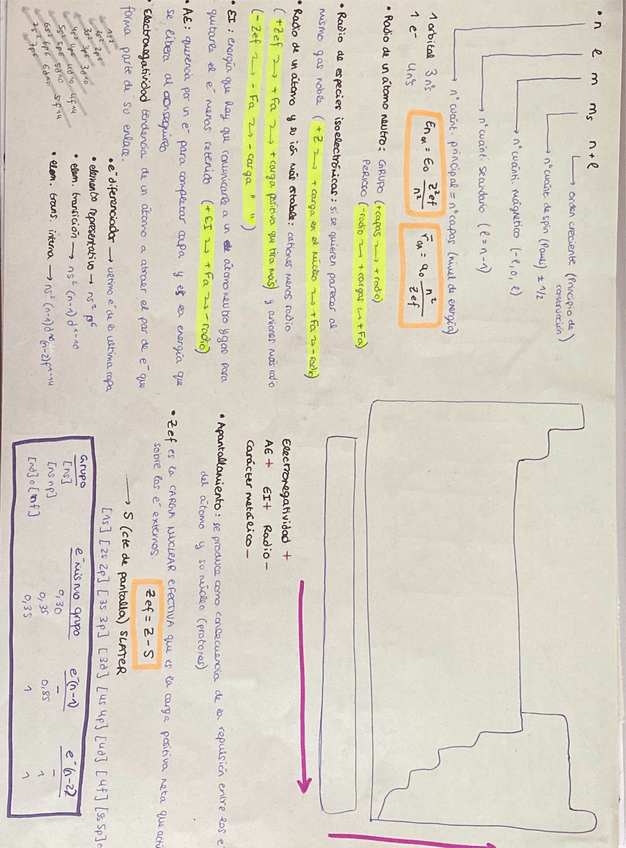 • n l m ms n+l
→ orden creciente (Principio de construcción)
→ nº cuánt. de spin (Pauli) ± 1/2
→ nº cuánt. magnético (-l, 0, l)
→ nº cuánt. secundario (l = n - 1)
→ nº cuánt. principal = nº capas (nivel de energía)
1 orbital 3 nºs
1 e- 4 nºs
En,l = E0 z²ef / n²
r̄n,l = a0 n² / zef
• Radio de un átomo neutro: GRUPO (+capas → +radio)
PERIODO (-radio → +cargas → +Fa)
• Radio de especies isoelectrónicas: si se quieren parecer al
mismo gas noble (+Z → +carga en el núcleo → +Fa → -radio)
• Radio de un átomo y su ión más estable: cationes menos radio
(+Zef → +Fa → +carga positiva que tira más) y aniones más radio
(-Zef → -Fa → -carga " ")
• EI: energía que hay que comunicarle a un átomo neutro y gas para
quitarle el e- menos retenido (+EI → +Fa → -radio)
• AE: querencia por un e- para completar capa y es la energía que
se libera al conseguirlo
• Electronegatividad tendencia de un átomo a atraer el par de e- que
forma parte de su enlace.
1s²
2s² 2p6
3s² 3p6 3d10
4s² 4p6 4d10 4f14
5s² 5p6 5d10 5f14
6s² 6p6 6d10
7s² 7p6
• e- diferenciador → último e- de la última capa
• elemento representativo → ns² p6
• elem. transición → ns² (n-1)d1-10
• elem. trans. interna → ns² (n-1)d10 (n-2)f1-14
Electronegatividad +
AE + EI + Radio -
Carácter metálico -
• Apantallamiento: se produce como consecuencia de la repulsión entre los e-
del átomo y su núcleo (protones)
• Zef es la CARGA NUCLEAR EFECTIVA que es la carga positiva neta que actúa
sobre los e- externos.
Zef = Z - S
→ S (cte de pantalla) SLATER
[1s] [2s 2p] [3s 3p] [3d] [4s 4p] [4d] [4f] [5s 5p]
Grupo e- mismo grupo e- (n-1) e- (n-2)
[1s] 0,30 - -
[ns np] 0,35 0,85 1
[nd] o [nf] 0,35 1 1